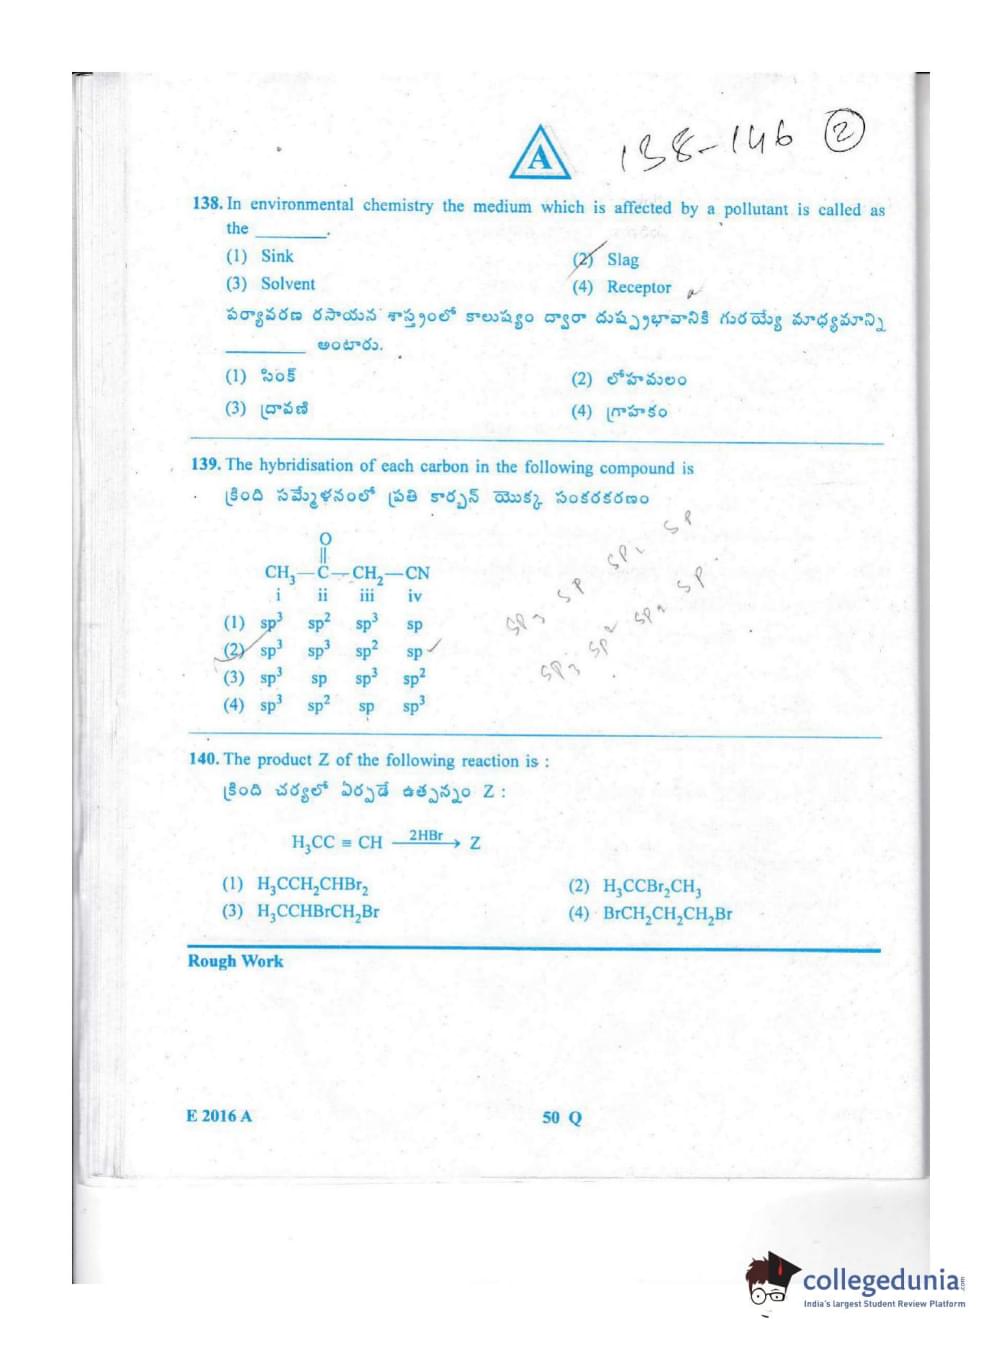 A
138-146 2
138. In environmental chemistry the medium which is affected by a pollutant is called as
the ________.
(1) Sink
(2) Slag
(3) Solvent
(4) Receptor
పర్యావరణ రసాయన శాస్త్రంలో కాలుష్యం ద్వారా దుష్ప్రభావానికి గురయ్యే మాధ్యమాన్ని
________ అంటారు.
(1) సింక్
(2) లోహమలం
(3) ద్రావణి
(4) గ్రాహకం
139. The hybridisation of each carbon in the following compound is
క్రింది సమ్మేళనంలో ప్రతి కార్బన్ యొక్క సంకరకరణం
O
||
CH₃—C—CH₂—CN
i ii iii iv
(1) sp³ sp² sp³ sp
(2) sp³ sp³ sp² sp
(3) sp³ sp sp³ sp²
(4) sp³ sp² sp sp³
SP3 SP SP2 SP
SP3 SP2 SP2 SP
140. The product Z of the following reaction is :
క్రింది చర్యలో ఏర్పడే ఉత్పన్నం Z :
H₃CC ≡ CH 2HBr→ Z
(1) H₃CCH₂CHBr₂
(2) H₃CCBr₂CH₃
(3) H₃CCHBrCH₂Br
(4) BrCH₂CH₂CH₂Br
Rough Work
E 2016 A
50 Q
collegedunia
India's largest Student Review Platform